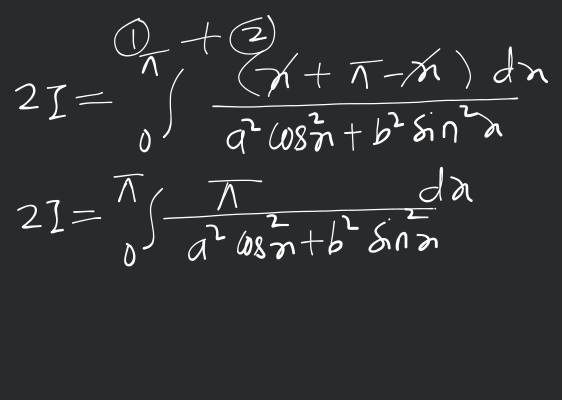 ① + ②
2I = ∫₀^π (x + π - x) dx / (a² cos²x + b² sin²x)
2I = ∫₀^π π dx / (a² cos²x + b² sin²x)